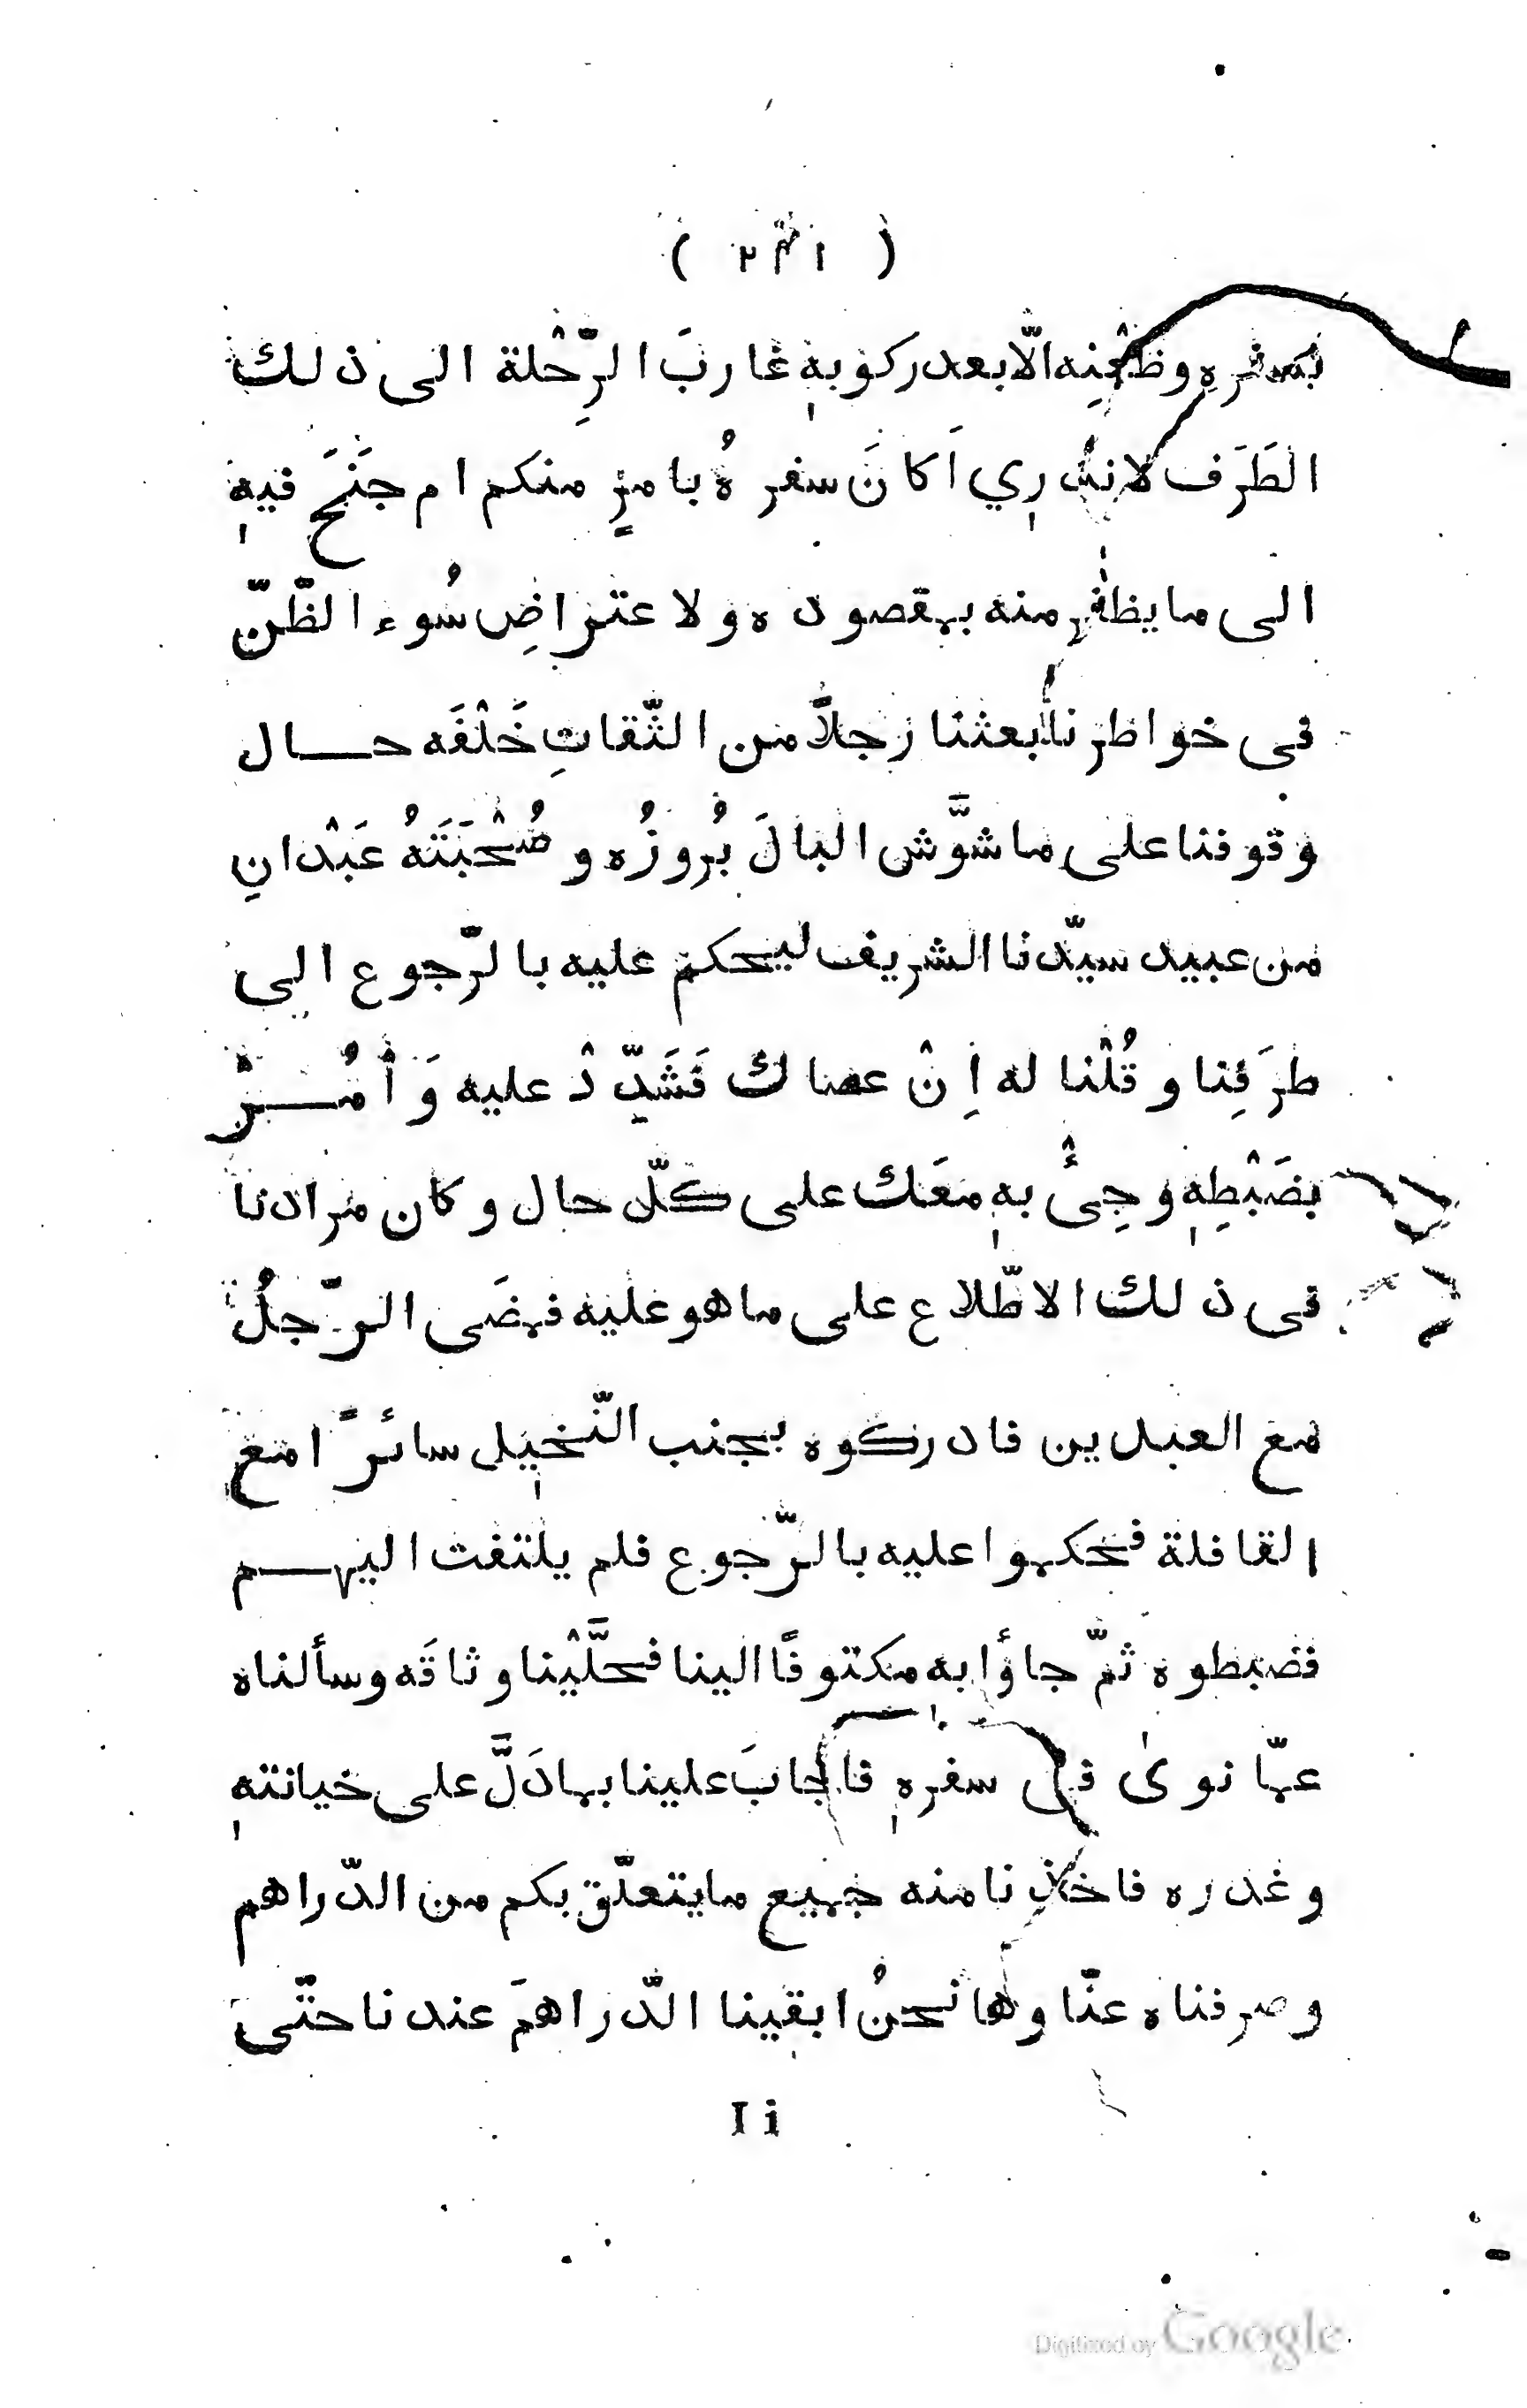 ( ٢٤١ )
بسفرهِ وظعْنِه الّا بعد ركوبهٖ غاربَ الرِّحْلة الى ذلك
الطَرَف لاندري اَكانَ سفرهُ بامرٍ منكم ام جَنَحَ فيهٖ
الى ما يظفر منه بمقصوده ولاعتراضِ سُوء الظّنّ
فى خواطرنا بعثنا رجلاً من الثّقاتِ خَلْفَه حــال
وقوفنا على ما شوَّش البالَ بُروزُه وصُحْبَتَهُ عَبْدانِ
من عبيد سيّدنا الشريف ليحكم عليه بالرّجوع الى
طرَفِنا وقُلْنا له اِنْ عصاك فَشَدِّدْ عليه وَأْمُــرْ
بضَبْطِهٖ وجِئْ بهٖ معَك على كلّ حال وكان مرادنا
فى ذلك الاطّلاع على ما هو عليه فمضَى الرّجلُ
مع العبدين فادركوه بجنب النّخيل سائرًا مع
القافلة فحكموا عليه بالرّجوع فلم يلتفت اليهــم
فضبطوه ثمّ جاؤا به مكتوفًا الينا فحلَّيْنا وثاقَه وسألناه
عمّا نوىٰ فى سفرهٖ فاجابَ علينا بما دَلَّ على خيانتهٖ
وغدره فاخذنا منه جميع ما يتعلّق بكم من الدّراهم
وصرفناه عنّا وها نحنُ ابقينا الدّراهمَ عندنا حتّى
I i
Digitized by Google